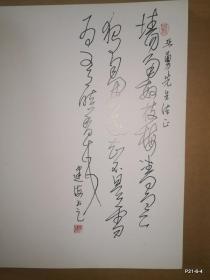 先生法正
墙角数枝梅凌寒
独自开遥知不是雪
为有暗香来
P21-6-4